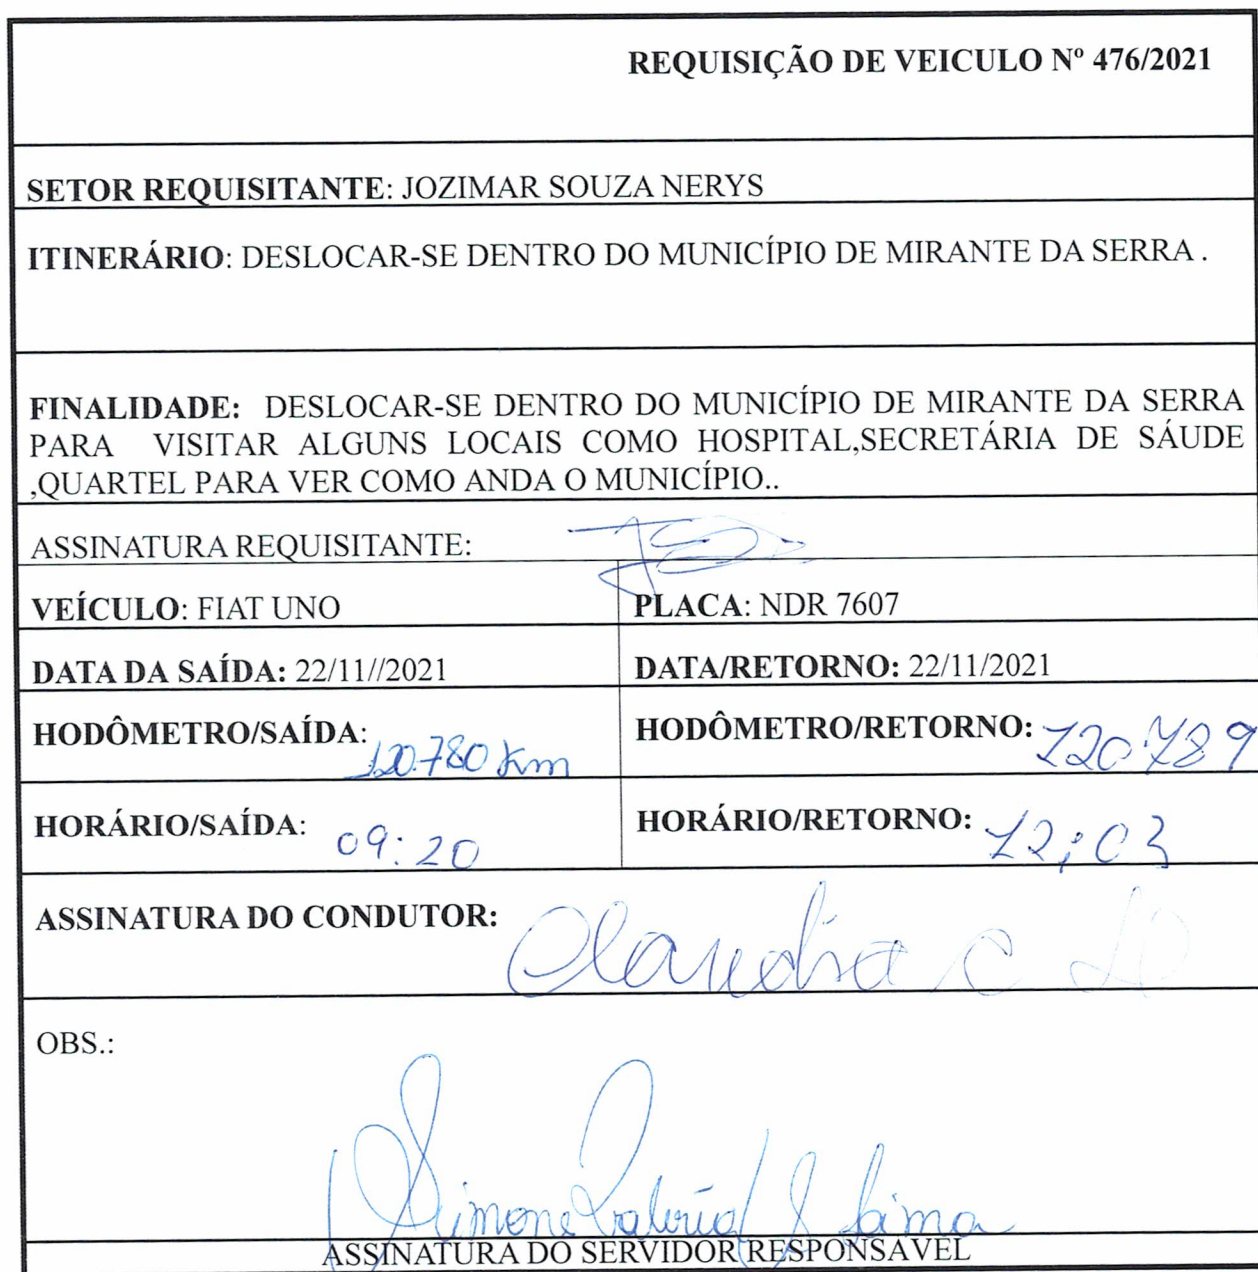 REQUISIÇÃO DE VEICULO Nº 476/2021
SETOR REQUISITANTE: JOZIMAR SOUZA NERYS
ITINERÁRIO: DESLOCAR-SE DENTRO DO MUNICÍPIO DE MIRANTE DA SERRA .
FINALIDADE: DESLOCAR-SE DENTRO DO MUNICÍPIO DE MIRANTE DA SERRA
PARA VISITAR ALGUNS LOCAIS COMO HOSPITAL,SECRETÁRIA DE SÁUDE
,QUARTEL PARA VER COMO ANDA O MUNICÍPIO..
ASSINATURA REQUISITANTE:
VEÍCULO: FIAT UNO PLACA: NDR 7607
DATA DA SAÍDA: 22/11//2021 DATA/RETORNO: 22/11/2021
HODÔMETRO/SAÍDA: 120.780 Km HODÔMETRO/RETORNO: 120.789
HORÁRIO/SAÍDA: 09:20 HORÁRIO/RETORNO: 12:03
ASSINATURA DO CONDUTOR: Claudia C
OBS.:
Simone
ASSINATURA DO SERVIDOR RESPONSAVEL